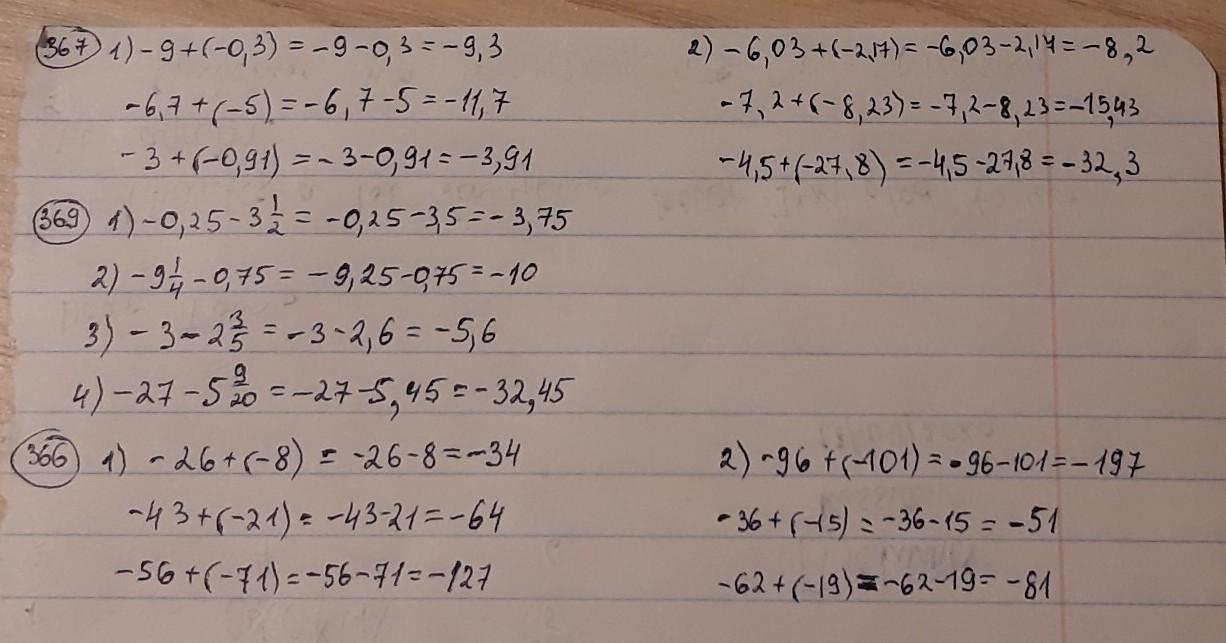 367 1) -9+(-0,3) = -9-0,3 = -9,3 2) -6,03+(-2,17) = -6,03-2,17 = -8,2
-6,7+(-5) = -6,7-5 = -11,7 -7,2+(-8,23) = -7,2-8,23 = -15,43
-3+(-0,91) = -3-0,91 = -3,91 -4,5+(-27,8) = -4,5-27,8 = -32,3
369 1) -0,25-3 1/2 = -0,25-3,5 = -3,75
2) -9 1/4 - 0,75 = -9,25-0,75 = -10
3) -3-2 3/5 = -3-2,6 = -5,6
4) -27-5 9/20 = -27-5,45 = -32,45
366 1) -26+(-8) = -26-8 = -34 2) -96+(-101) = -96-101 = -197
-43+(-21) = -43-21 = -64 -36+(-15) = -36-15 = -51
-56+(-71) = -56-71 = -127 -62+(-19) = -62-19 = -81